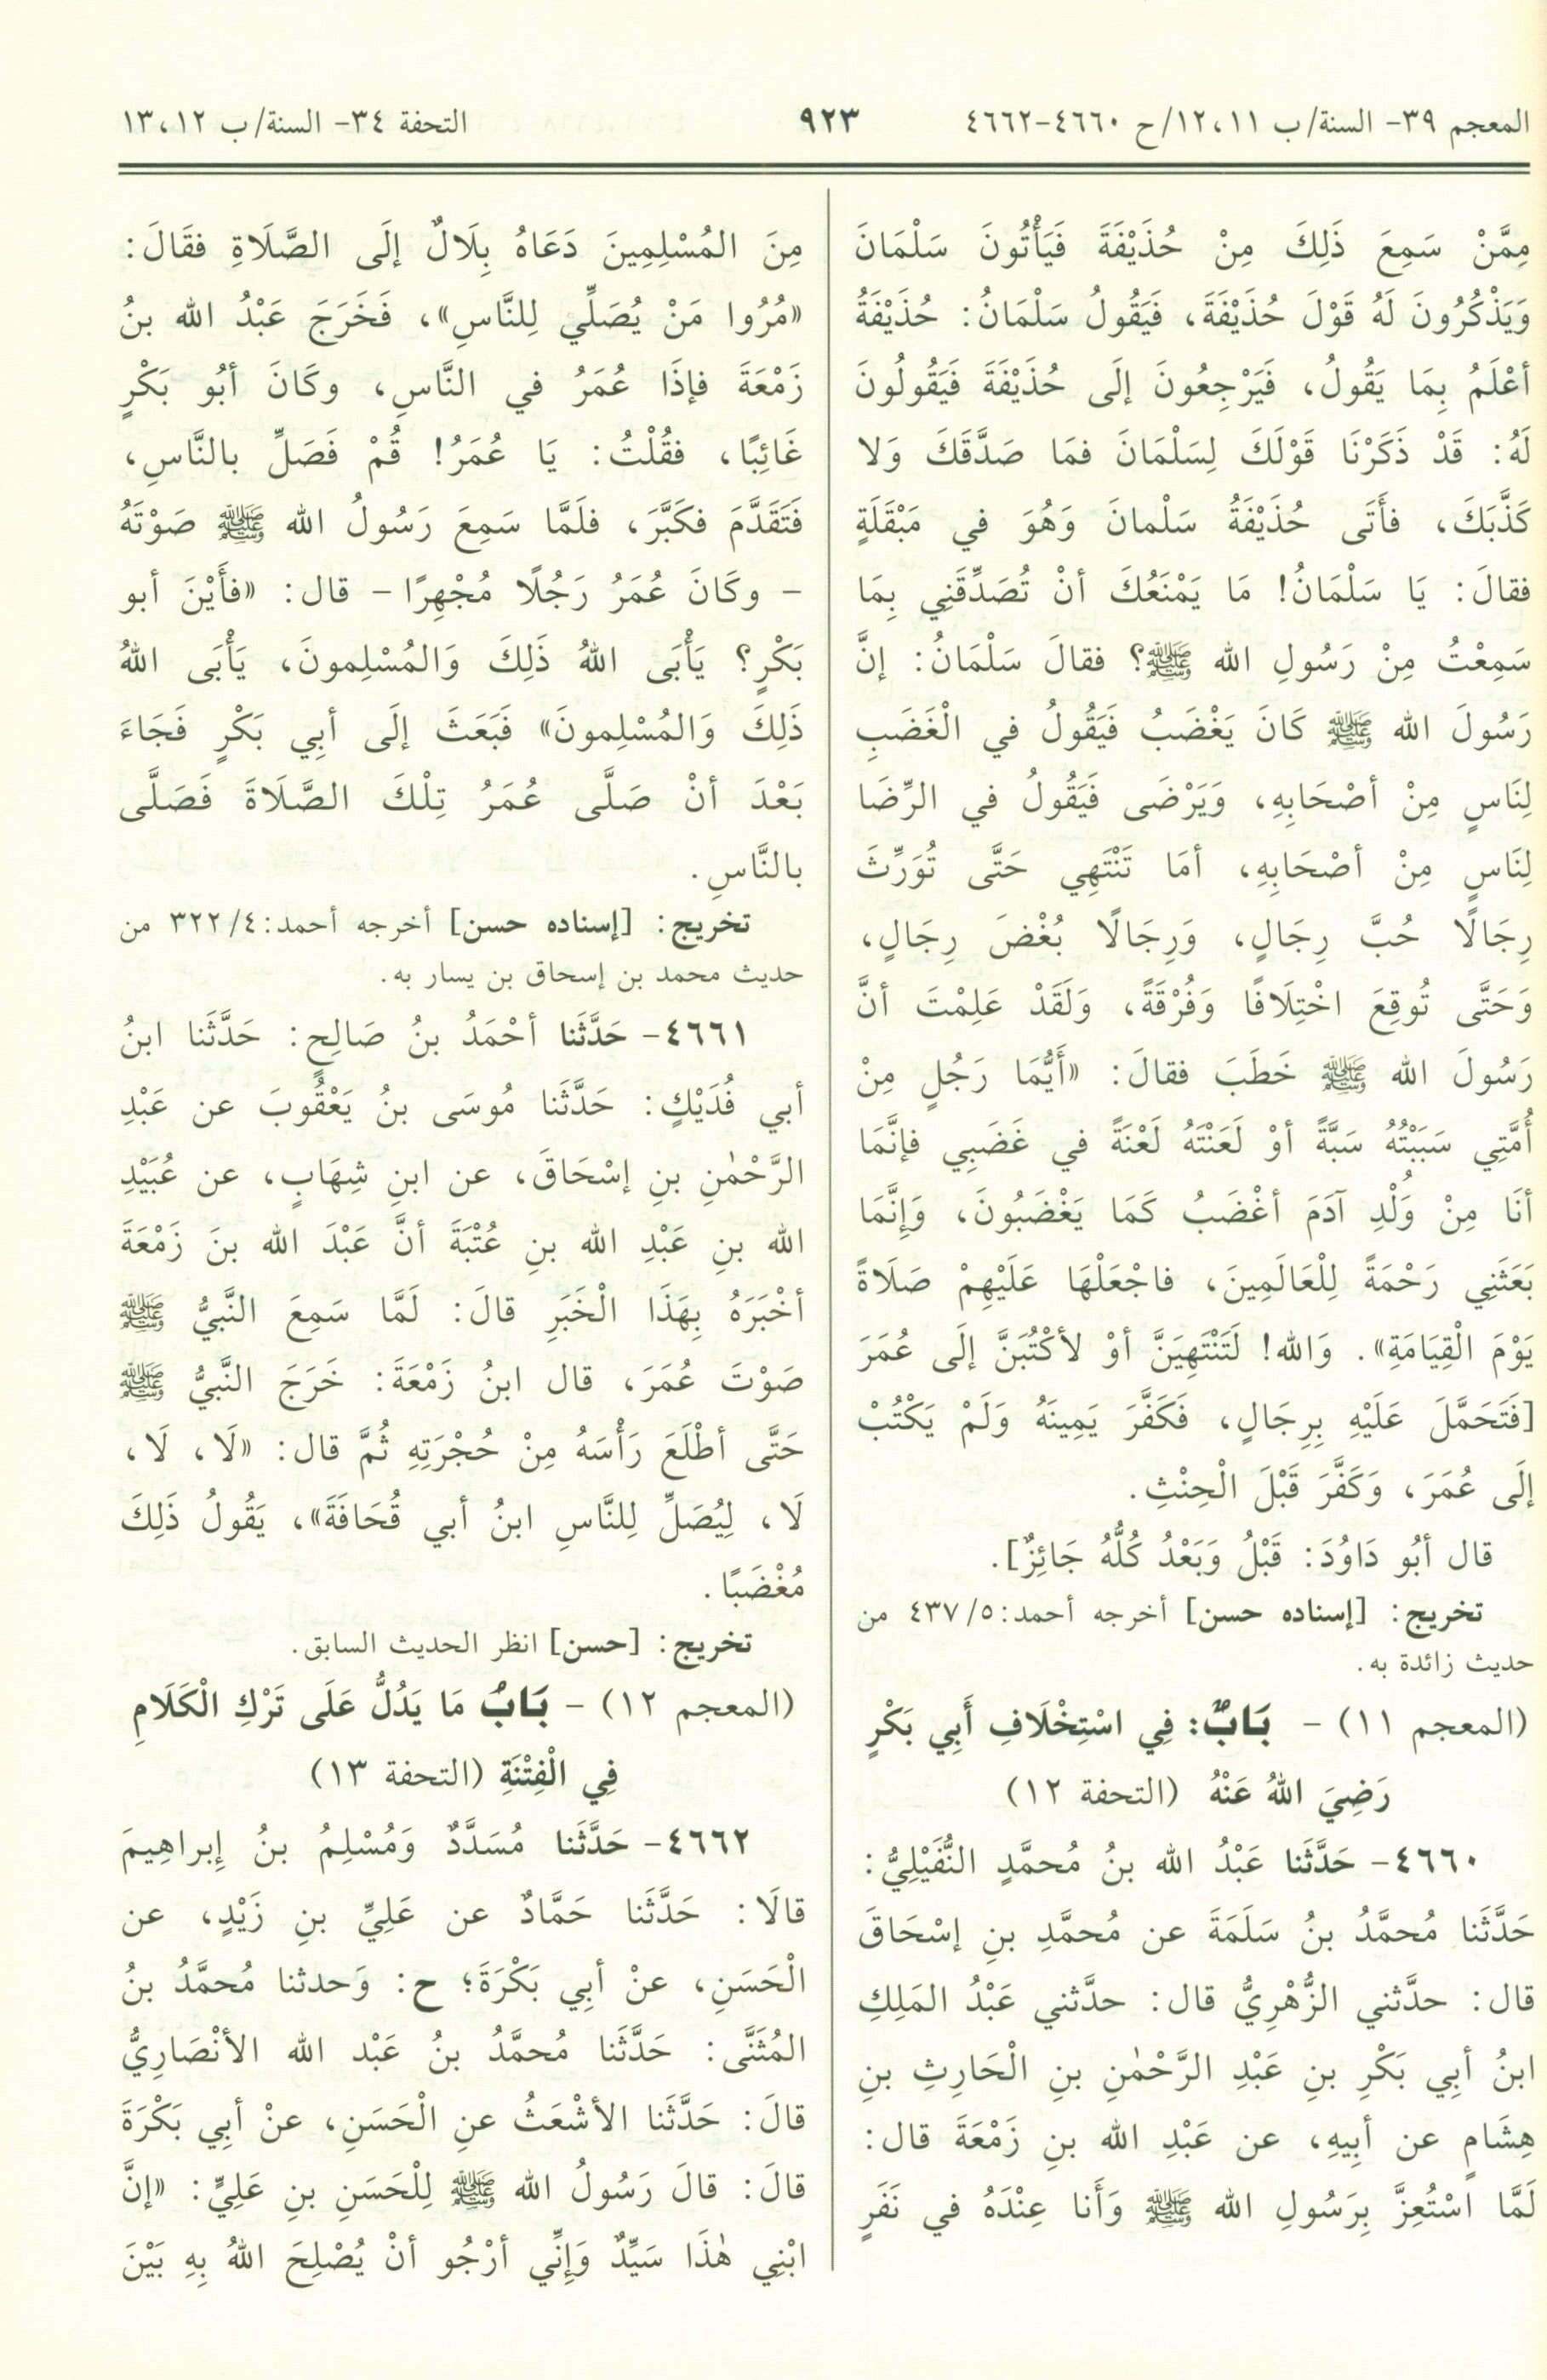 المعجم ٣٩- السنة/ ب ١٢،١١/ح ٤٦٦٠-٤٦٦٢
٩٢٣
التحفة ٣٤- السنة/ ب ١٣،١٢
مِمَّنْ سَمِعَ ذَلِكَ مِنْ حُذَيْفَةَ فَيَأْتُونَ سَلْمَانَ
وَيَذْكُرُونَ لَهُ قَوْلَ حُذَيْفَةَ، فَيَقُولُ سَلْمَانُ: حُذَيْفَةُ
أعْلَمُ بِمَا يَقُولُ، فَيَرْجِعُونَ إلَى حُذَيْفَةَ فَيَقُولُونَ
لَهُ: قَدْ ذَكَرْنَا قَوْلَكَ لِسَلْمَانَ فمَا صَدَّقَكَ وَلا
كَذَّبَكَ، فأَتَى حُذَيْفَةُ سَلْمانَ وَهُوَ في مَبْقَلَةٍ
فقالَ: يَا سَلْمَانُ! مَا يَمْنَعُكَ أنْ تُصَدِّقَنِي بِمَا
سَمِعْتُ مِنْ رَسُولِ الله ﷺ؟ فقالَ سَلْمَانُ: إنَّ
رَسُولَ الله ﷺ كَانَ يَغْضَبُ فَيَقُولُ في الْغَضَبِ
لِنَاسٍ مِنْ أصْحَابِهِ، وَيَرْضَى فَيَقُولُ في الرِّضَا
لِنَاسٍ مِنْ أصْحَابِهِ، أمَا تَنْتَهِي حَتَّى تُوَرِّثَ
رِجَالًا حُبَّ رِجَالٍ، وَرِجَالًا بُغْضَ رِجَالٍ،
وَحَتَّى تُوقِعَ اخْتِلَافًا وَفُرْقَةً، وَلَقَدْ عَلِمْتَ أنَّ
رَسُولَ الله ﷺ خَطَبَ فقالَ: «أَيُّمَا رَجُلٍ مِنْ
أُمَّتِي سَبَبْتُهُ سَبَّةً أوْ لَعَنْتَهُ لَعْنَةً في غَضَبِي فإنَّمَا
أنَا مِنْ وُلْدِ آدَمَ أغْضَبُ كَمَا يَغْضَبُونَ، وَإِنَّمَا
بَعَثَنِي رَحْمَةً لِلْعَالَمِينَ، فاجْعَلْهَا عَلَيْهِمْ صَلَاةً
يَوْمَ الْقِيَامَةِ». وَالله! لَتَنْتَهِيَنَّ أوْ لأكْتُبَنَّ إلَى عُمَرَ
[فَتَحَمَّلَ عَلَيْهِ بِرِجَالٍ، فَكَفَّرَ يَمِينَهُ وَلَمْ يَكْتُبْ
إلَى عُمَرَ، وَكَفَّرَ قَبْلَ الْحِنْثِ.
قال أبُو دَاوُدَ: قَبْلُ وَبَعْدُ كُلُّهُ جَائِزٌ].
تخريج: [إسناده حسن] أخرجه أحمد:٤٣٧/٥ من
حديث زائدة به.
(المعجم ١١) - بَابٌ: فِي اسْتِخْلَافِ أَبِي بَكْرٍ
رَضِيَ اللهُ عَنْهُ (التحفة ١٢)
٤٦٦٠- حَدَّثَنا عَبْدُ الله بنُ مُحمَّدٍ النُّفَيْلِيُّ:
حَدَّثَنا مُحمَّدُ بنُ سَلَمَةَ عن مُحمَّدِ بنِ إسْحَاقَ
قال: حدَّثني الزُّهْرِيُّ قال: حدَّثني عَبْدُ المَلِكِ
ابنُ أبِي بَكْرِ بنِ عَبْدِ الرَّحْمٰنِ بنِ الْحَارِثِ بنِ
هِشَامٍ عن أبِيهِ، عن عَبْدِ الله بنِ زَمْعَةَ قال:
لَمَّا اسْتُعِزَّ بِرَسُولِ الله ﷺ وَأَنا عِنْدَهُ في نَفَرٍ
مِنَ المُسْلِمِينَ دَعَاهُ بِلَالٌ إلَى الصَّلَاةِ فقَالَ:
«مُرُوا مَنْ يُصَلِّي لِلنَّاسِ»، فَخَرَجَ عَبْدُ الله بنُ
زَمْعَةَ فإذَا عُمَرُ في النَّاسِ، وكَانَ أبُو بَكْرٍ
غَائِبًا، فقُلْتُ: يَا عُمَرُ! قُمْ فَصَلِّ بالنَّاسِ،
فَتَقَدَّمَ فكَبَّرَ، فلَمَّا سَمِعَ رَسُولُ الله ﷺ صَوْتَهُ
- وكَانَ عُمَرُ رَجُلًا مُجْهِرًا - قال: «فأَيْنَ أبو
بَكْرٍ؟ يَأْبَى اللهُ ذَلِكَ وَالمُسْلِمونَ، يَأْبَى اللهُ
ذَلِكَ وَالمُسْلِمونَ» فَبَعَثَ إلَى أبِي بَكْرٍ فَجَاءَ
بَعْدَ أنْ صَلَّى عُمَرُ تِلْكَ الصَّلَاةَ فَصَلَّى
بالنَّاسِ.
تخريج: [إسناده حسن] أخرجه أحمد:٣٢٢/٤ من
حديث محمد بن إسحاق بن يسار به.
٤٦٦١- حَدَّثَنا أحْمَدُ بنُ صَالِحٍ: حَدَّثَنا ابنُ
أبي فُدَيْكٍ: حَدَّثَنا مُوسَى بنُ يَعْقُوبَ عن عَبْدِ
الرَّحْمٰنِ بنِ إسْحَاقَ، عن ابنِ شِهَابٍ، عن عُبَيْدِ
الله بنِ عَبْدِ الله بنِ عُتْبَةَ أنَّ عَبْدَ الله بنَ زَمْعَةَ
أخْبَرَهُ بِهَذَا الْخَبَرِ قالَ: لَمَّا سَمِعَ النَّبيُّ ﷺ
صَوْتَ عُمَرَ، قال ابنُ زَمْعَةَ: خَرَجَ النَّبيُّ ﷺ
حَتَّى أطْلَعَ رَأْسَهُ مِنْ حُجْرَتِهِ ثُمَّ قال: «لَا، لَا،
لَا، لِيُصَلِّ لِلنَّاسِ ابنُ أبي قُحَافَةَ»، يَقُولُ ذَلِكَ
مُغْضَبًا.
تخريج: [حسن] انظر الحديث السابق.
(المعجم ١٢) - بَابُ مَا يَدُلُّ عَلَى تَرْكِ الْكَلَامِ
فِي الْفِتْنَةِ (التحفة ١٣)
٤٦٦٢- حَدَّثَنا مُسَدَّدٌ وَمُسْلِمُ بنُ إبراهِيمَ
قالَا: حَدَّثَنا حَمَّادٌ عن عَلِيِّ بنِ زَيْدٍ، عن
الْحَسَنِ، عنْ أبِي بَكْرَةَ؛ ح: وَحدثنا مُحمَّدُ بنُ
المُثَنَّى: حَدَّثَنا مُحمَّدُ بنُ عَبْد الله الأنْصَارِيُّ
قالَ: حَدَّثَنا الأشْعَثُ عنِ الْحَسَنِ، عنْ أبِي بَكْرَةَ
قالَ: قالَ رَسُولُ الله ﷺ لِلْحَسَنِ بنِ عَلِيٍّ: «إنَّ
ابْنِي هٰذَا سَيِّدٌ وَإِنِّي أرْجُو أنْ يُصْلِحَ اللهُ بِهِ بَيْنَ